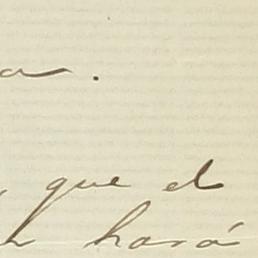 a.
, que el
hará